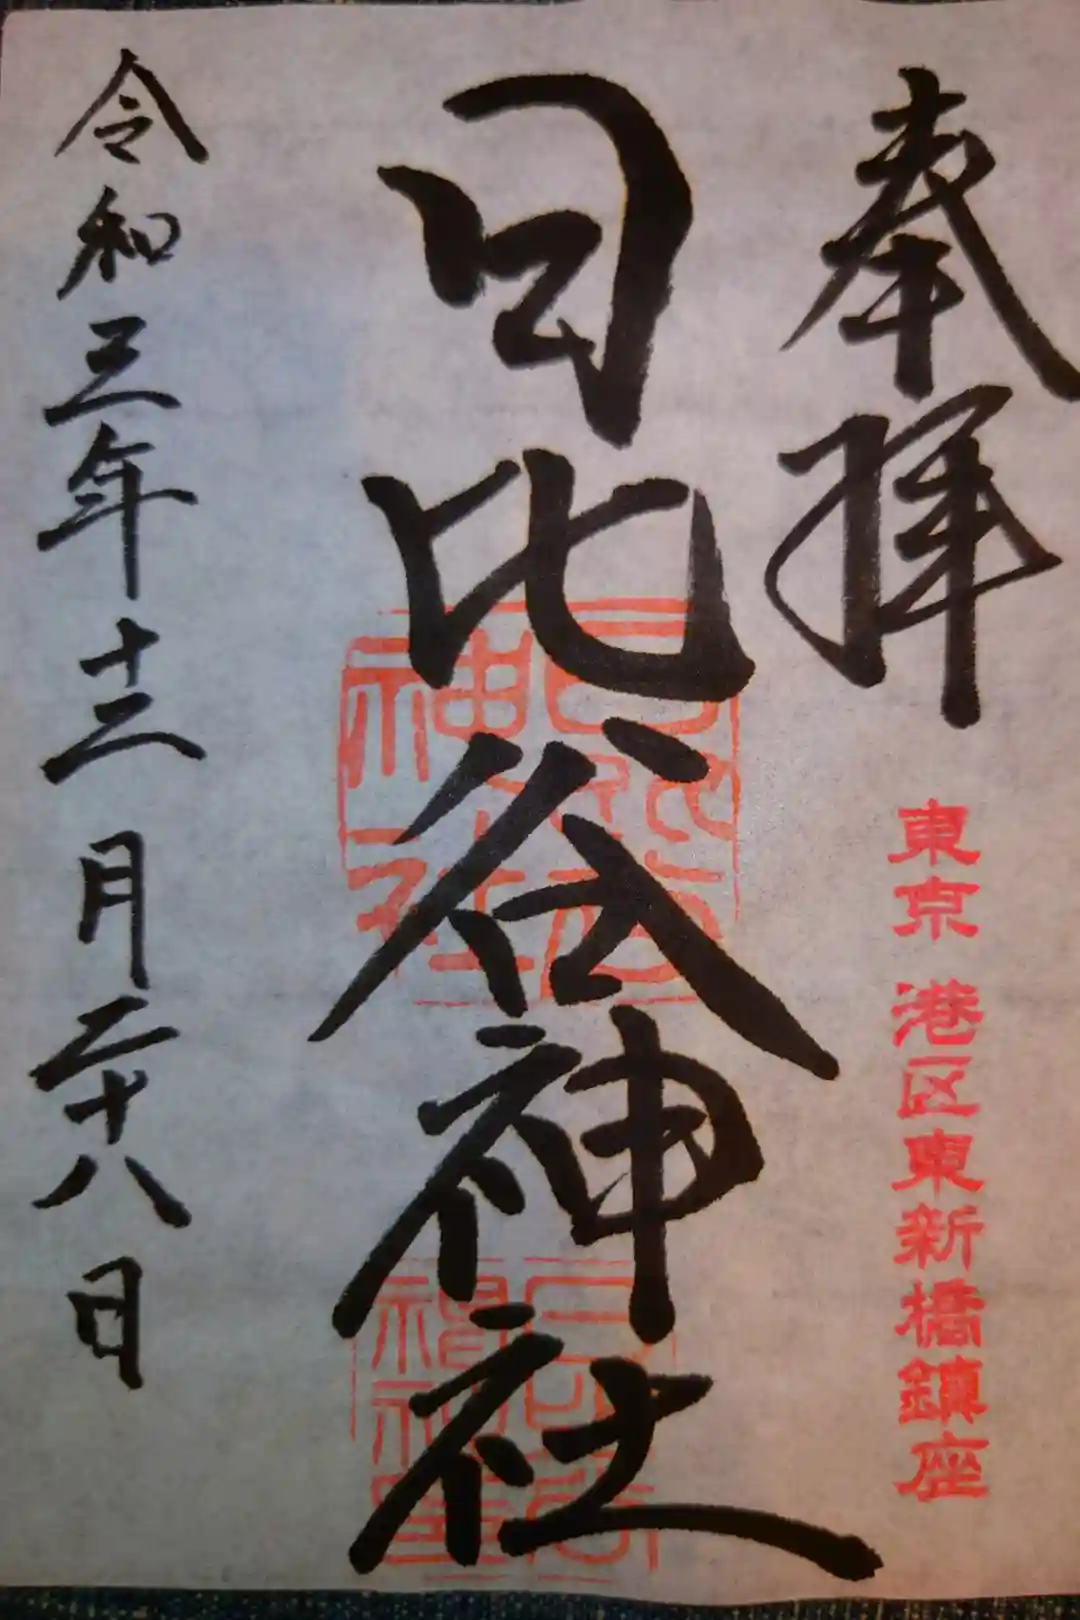 奉拝
東京 港区東新橋鎮座
日比谷神社
令和三年十二月二十八日
日比谷神社